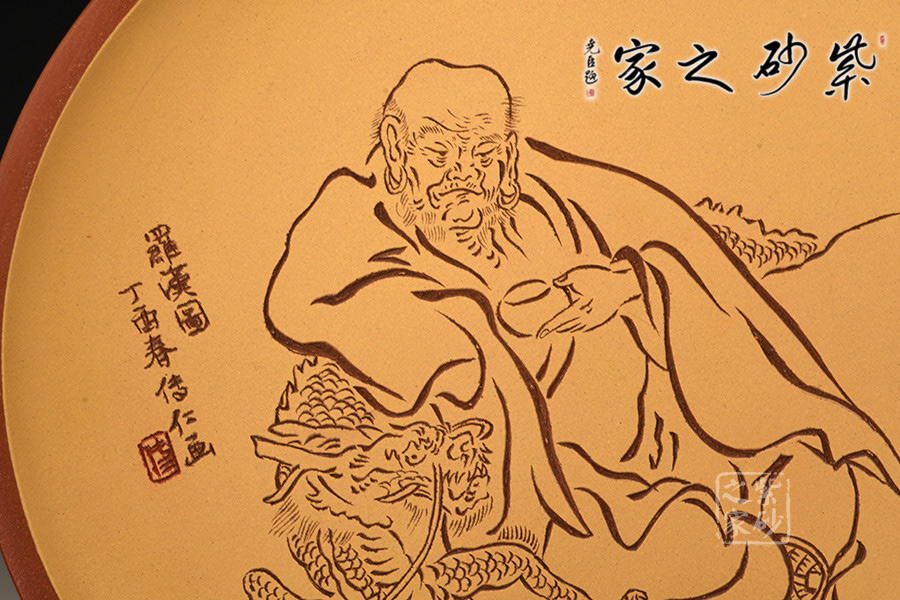 紫砂之家
尧臣题
羅漢圖
丁酉春传仁画
紫砂之家